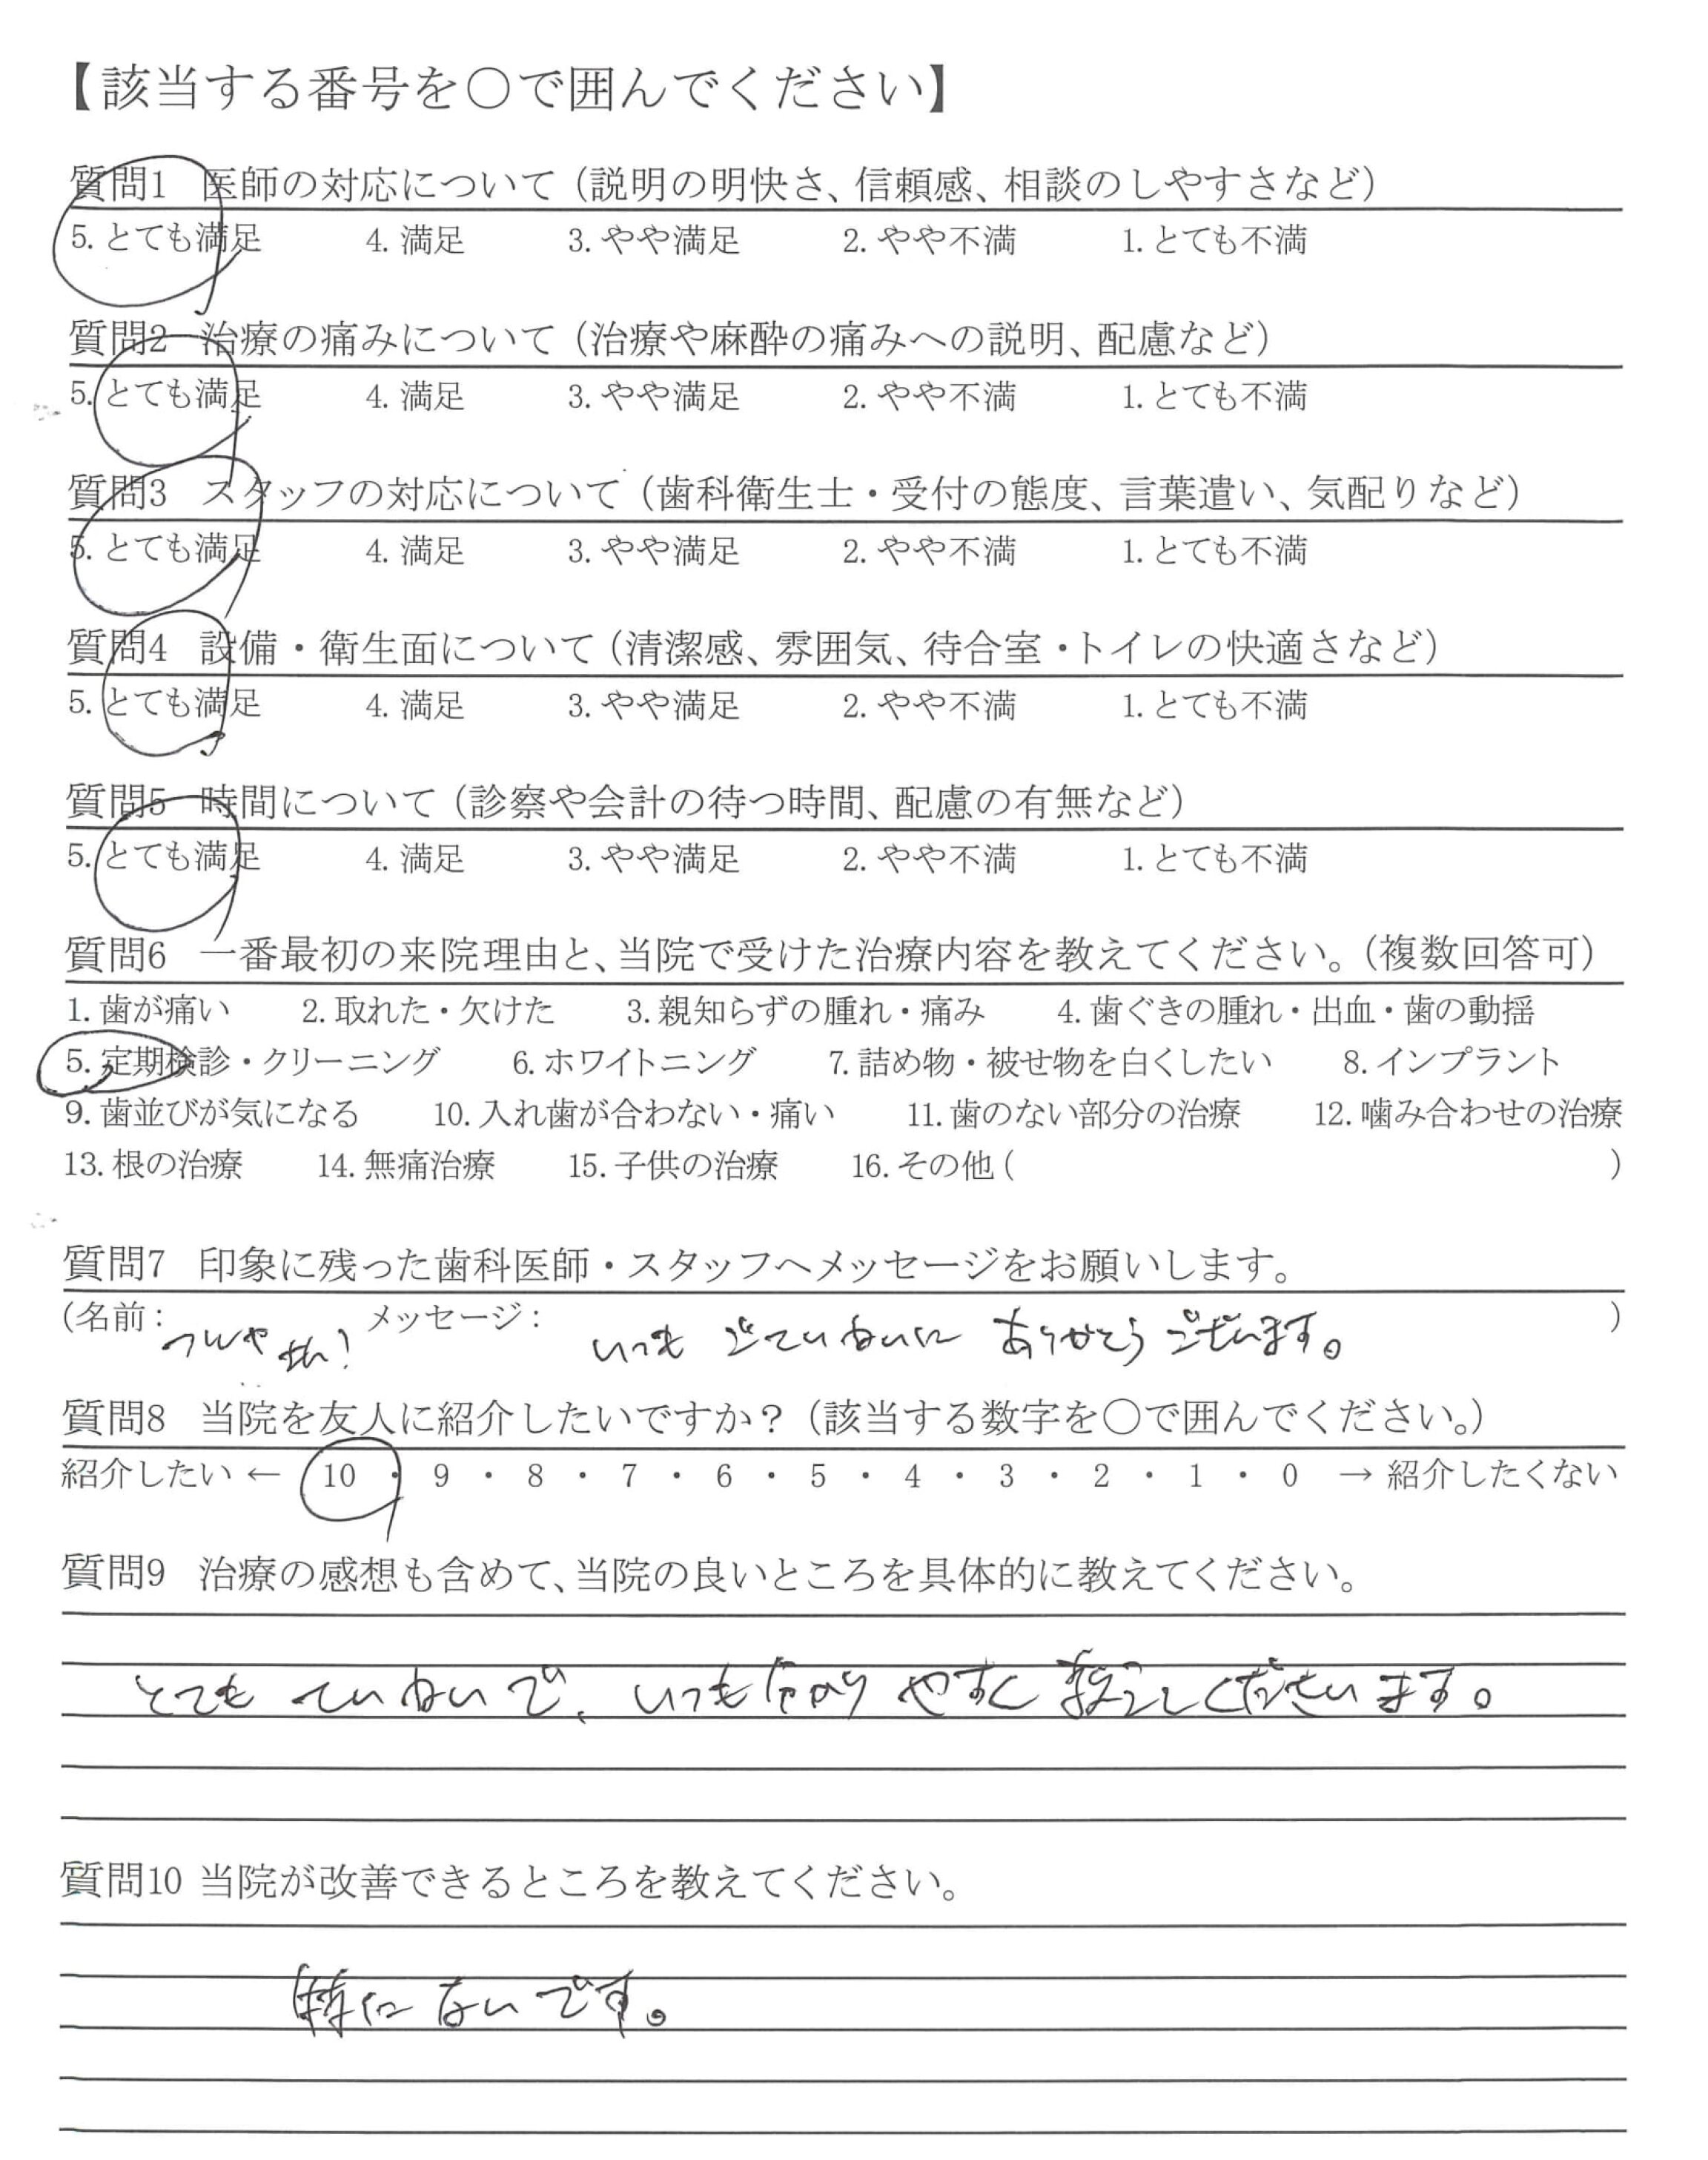 【該当する番号を○で囲んでください】
質問1 医師の対応について（説明の明快さ、信頼感、相談のしやすさなど）
5. とても満足 4. 満足 3. やや満足 2. やや不満 1. とても不満
質問2 治療の痛みについて（治療や麻酔の痛みへの説明、配慮など）
5. とても満足 4. 満足 3. やや満足 2. やや不満 1. とても不満
質問3 スタッフの対応について（歯科衛生士・受付の態度、言葉遣い、気配りなど）
5. とても満足 4. 満足 3. やや満足 2. やや不満 1. とても不満
質問4 設備・衛生面について（清潔感、雰囲気、待合室・トイレの快適さなど）
5. とても満足 4. 満足 3. やや満足 2. やや不満 1. とても不満
質問5 時間について（診察や会計の待つ時間、配慮の有無など）
5. とても満足 4. 満足 3. やや満足 2. やや不満 1. とても不満
質問6 一番最初の来院理由と、当院で受けた治療内容を教えてください。（複数回答可）
1. 歯が痛い 2. 取れた・欠けた 3. 親知らずの腫れ・痛み 4. 歯ぐきの腫れ・出血・歯の動揺
5. 定期検診・クリーニング 6. ホワイトニング 7. 詰め物・被せ物を白くしたい 8. インプラント
9. 歯並びが気になる 10. 入れ歯が合わない・痛い 11. 歯のない部分の治療 12. 噛み合わせの治療
13. 根の治療 14. 無痛治療 15. 子供の治療 16. その他（ ）
質問7 印象に残った歯科医師・スタッフへメッセージをお願いします。
（名前： メッセージ： いつも ごていねいに ありがとう ございます。 ）
質問8 当院を友人に紹介したいですか？（該当する数字を○で囲んでください。）
紹介したい ← 10 ・ 9 ・ 8 ・ 7 ・ 6 ・ 5 ・ 4 ・ 3 ・ 2 ・ 1 ・ 0 → 紹介したくない
質問9 治療の感想も含めて、当院の良いところを具体的に教えてください。
とても ていねいで、いつも分かり やすく 教えてくださいます。
質問10 当院が改善できるところを教えてください。
特に ないです。